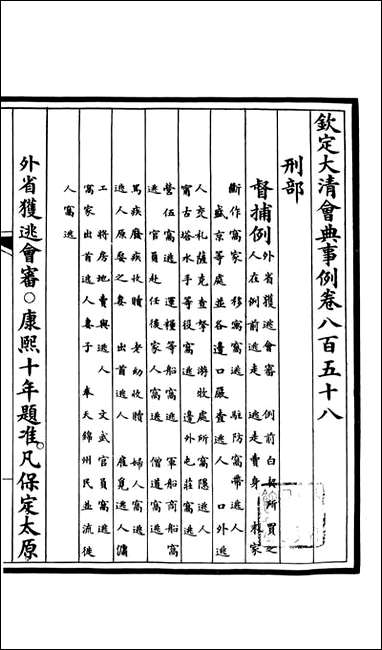 欽定大清會典事例卷八百五十八
刑部
督捕例
外省獲逃會審 例前白契所買之
人在例前逃走 逃走賣身 親家
斷作窩家 移窩窩逃 駐防窩帶逃人
盛京等處並各邊口嚴查逃人 口外逃
人交札薩克查拏 游牧處所窩隱逃人
甯古塔水手等役窩逃 邊外屯莊窩逃
營伍窩逃 運糧等船窩逃 軍船商船窩
逃 官員赴任後家人窩逃 僧道窩逃
篤疾廢疾收贖 老幼收贖 婦人窩逃
逃人原娶之妻 出首逃人 雇覓逃人傭
工 將房地賣與逃人 文武官員窩逃
窩家出首逃人妻子 奉天錦州民並流徙
人窩逃
外省獲逃會審○康熙十年題准凡保定太原